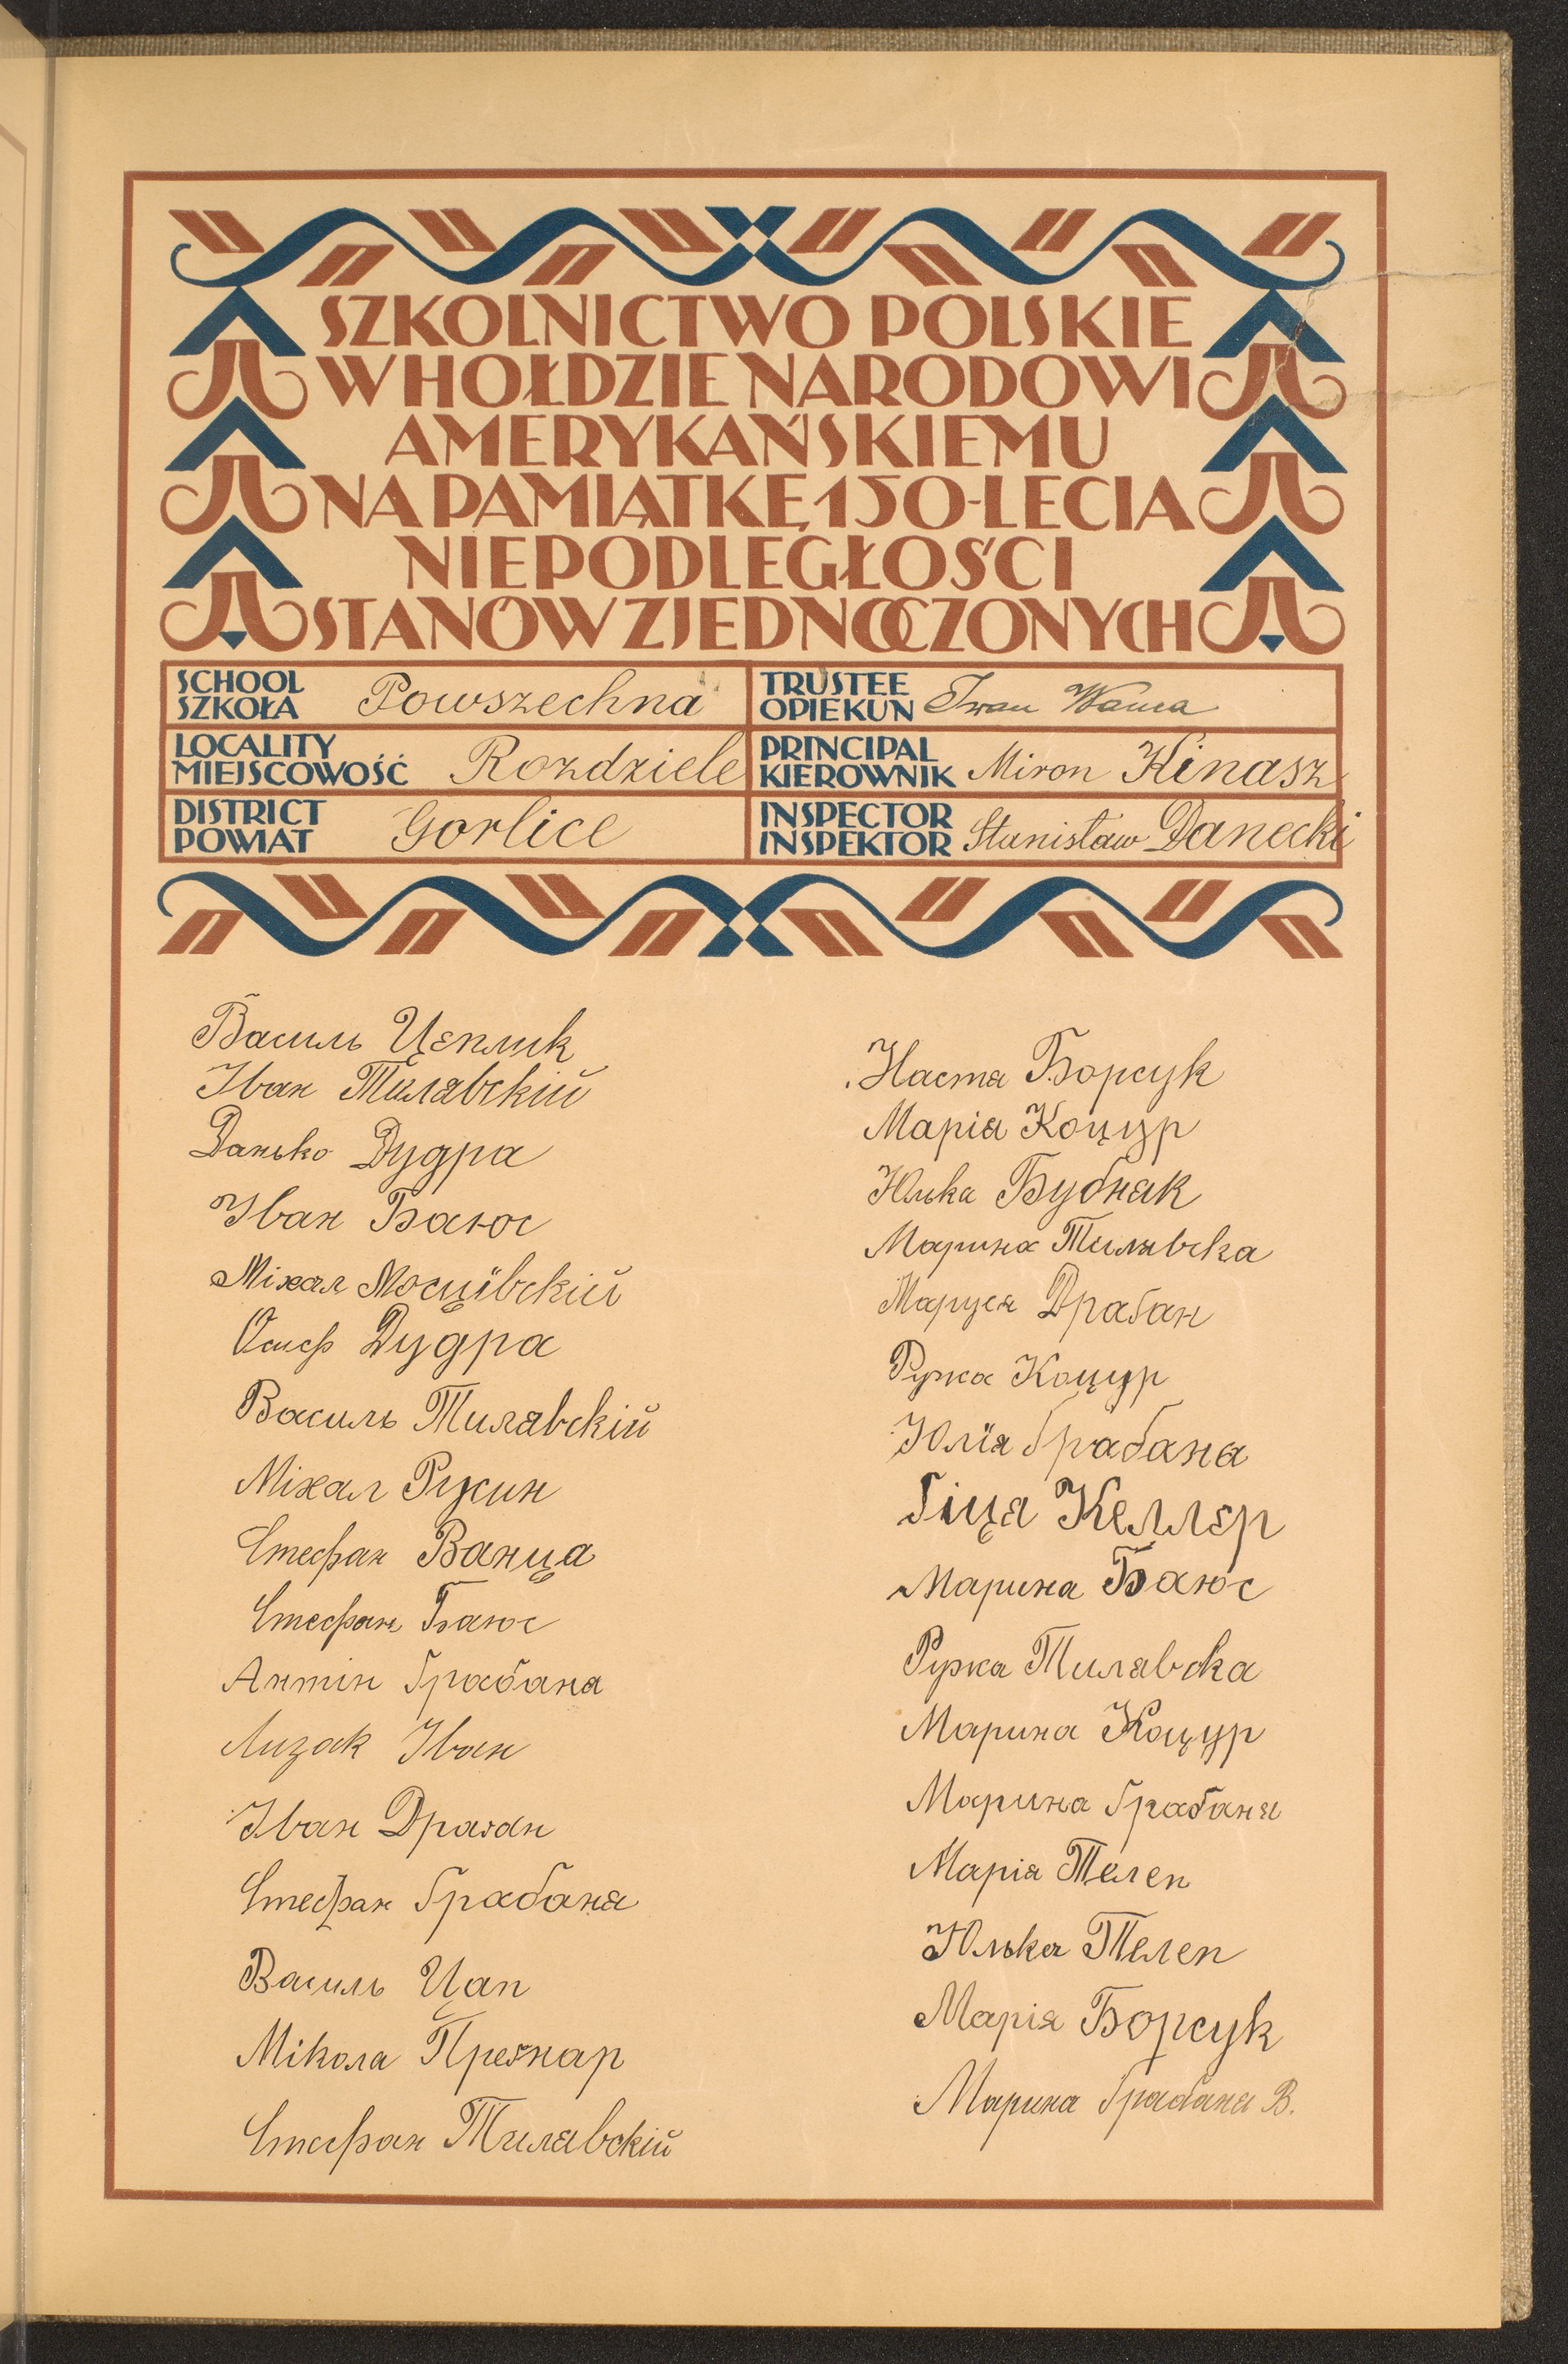 SZKOLNICTWO POLSKIE
W HOŁDZIE NARODOWI
AMERYKAŃSKIEMU
NA PAMIĄTKĘ 150-LECIA
NIEPODLEGŁOŚCI
STANÓW ZJEDNOCZONYCH
SCHOOL
SZKOŁA Powszechna
TRUSTEE
OPIEKUN Iwan
LOCALITY
MIEJSCOWOŚĆ Rozdziele
PRINCIPAL
KIEROWNIK Miron Kinasz
DISTRICT
POWIAT Gorlice
INSPECTOR
INSPEKTOR Stanisław Danecki
Василь Цеплик
Іван Тилявскій
Данько Дудра
Іван Баюс
Міхал Мосцївскій
Осиф Дудра
Василь Тилявскій
Міхал Русин
Стефан Ванца
Стефан Баюс
Антін Ґрабаня
Лизак Іван
Іван Драган
Стефан Ґрабаня
Василь Цап
Мікола Прегнар
Стефан Тилявскій
Настя Борсук
Марія Коцур
Юлька Бубняк
Марина Тилявска
Маруся Драган
Ружа Коцур
Юлїя Ґрабаня
Гіця Келлєр
Марина Баюс
Ружка Тилявска
Марина Коцур
Марина Ґрабаня
Марія Телеп
Юлька Телеп
Марія Борсук
Марина Ґрабаня В.